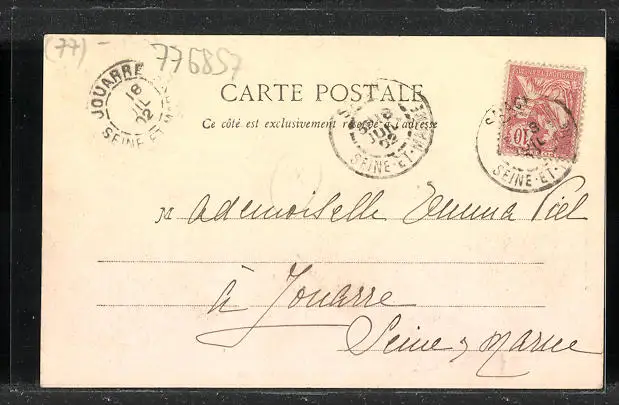 (77) -
776857
JOUARRE
18
JUIL
02
SEINE-ET-M
CARTE POSTALE
Ce côté est exclusivement réservé à l'adresse
18
JUIL
02
SEINE-ET-M
10
SEINE-ET-M
Mademoiselle Emma Viel
à Jouarre
Seine & Marne